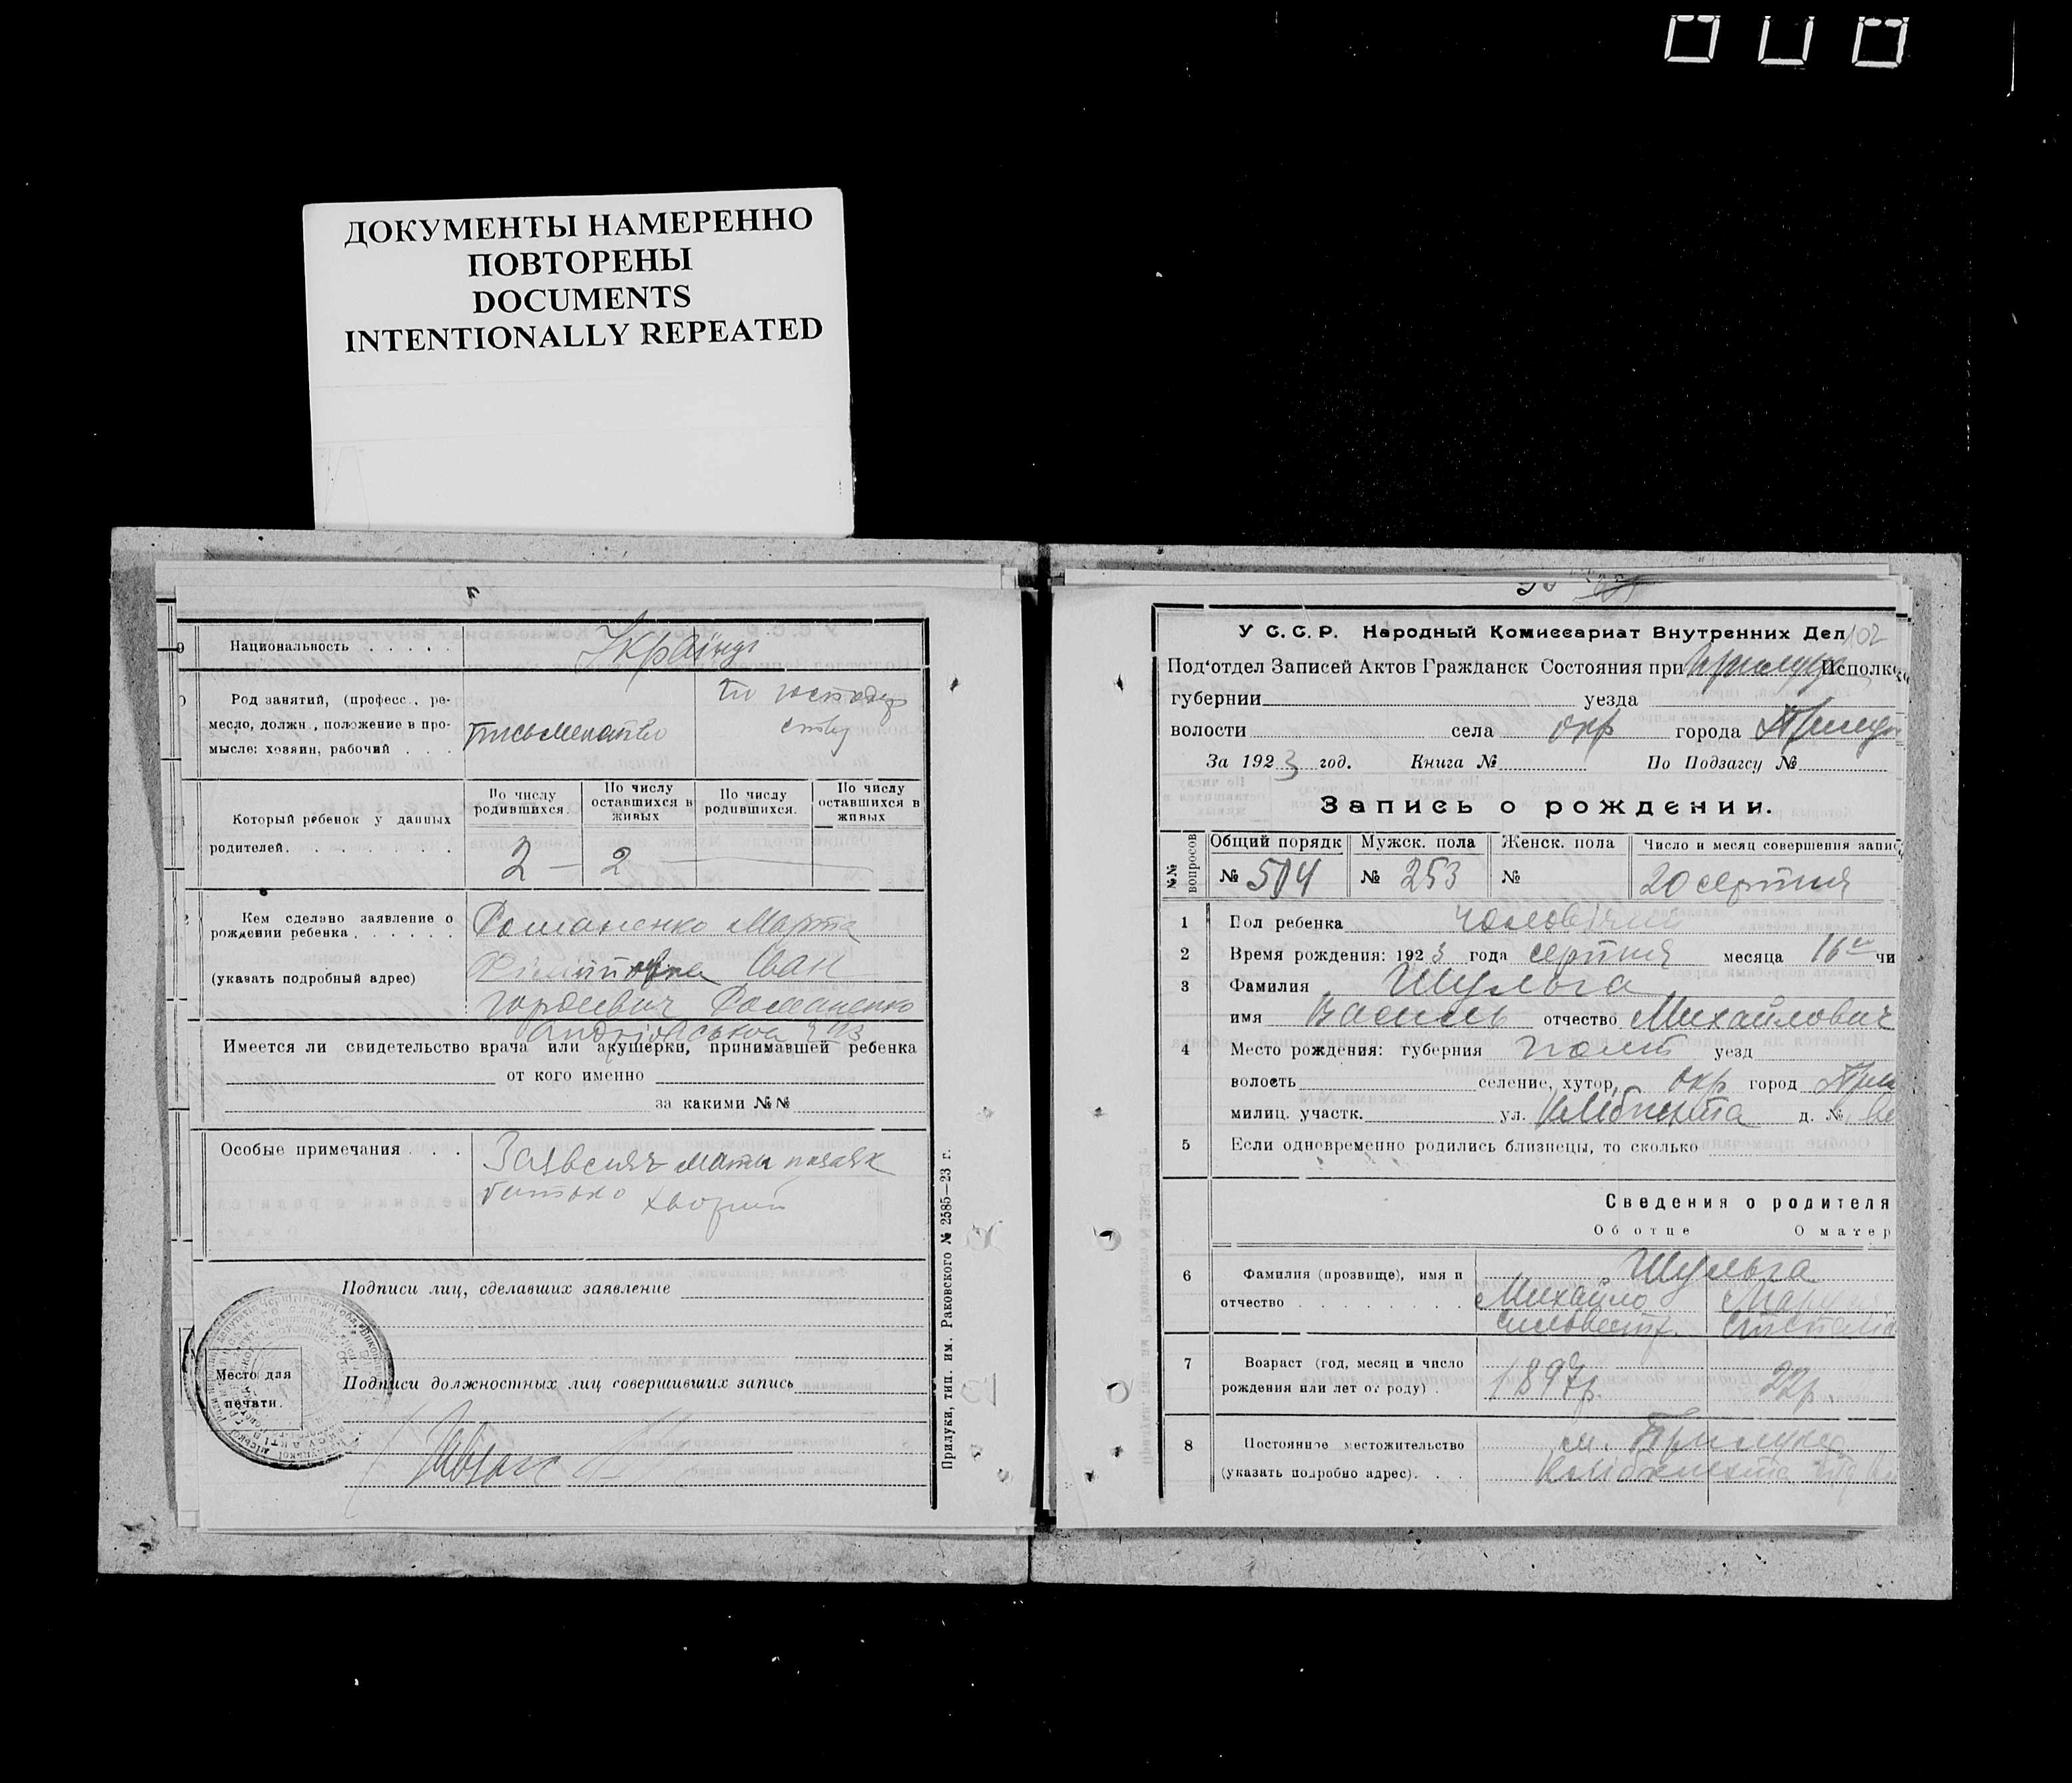 ДОКУМЕНТЫ НАМЕРЕННО
ПОВТОРЕНЫ
DOCUMENTS
INTENTIONALLY REPEATED
Национальность
Род занятий, (професс., ре-
месло, должн., положение в про-
мысле: хозяин, рабочий
По числу родившихся. По числу оставшихся в живых По числу родившихся. По числу оставшихся в живых
Который ребенок у данных
родителей.
2 — 2
Кем сделано заявление о
рождении ребенка
Романенко Марта
(указать подробный адрес)
Іван
Гордієвич Романенко
Имеется ли свидетельство врача или акушерки, принимавшей ребенка
от кого именно
за какими №№
Особые примечания
мати
батько хворий
Подписи лиц, сделавших заявление
Место для
печати.
Подписи должностных лиц совершивших запись
Прилуки, тип. им. Раковского № 2585—23 г.
102
У С. С. Р. Народный Комиссариат Внутренних Дел
Под‘отдел Записей Актов Гражданск Состояния при Исполк
губернии уезда
волости села окр города
За 1923 год. Книга № По Подзагсу №
Запись о рождении.
№№ вопросов
Общий порядк Мужск. пола Женск. пола Число и месяц совершения запис
№ 504 № 253 № 20 серпня
1 Пол ребенка
2 Время рождения: 1923 года серпня месяца 16 чи
3 Фамилия Шульга
имя Василь отчество Михайлович
4 Место рождения: губерния Полт уезд
волость селение, хутор, окр город
милиц. участк. ул. д. №
5 Если одновременно родились близнецы, то сколько
Сведения о родителя
Об отце О матер
6 Фамилия (прозвище), имя и
отчество
Шульга
Михайло
7 Возраст (год, месяц и число
рождения или лет от роду)
1897р. 22р.
8 Постоянное местожительство
(указать подробно адрес).
м. Прилуки